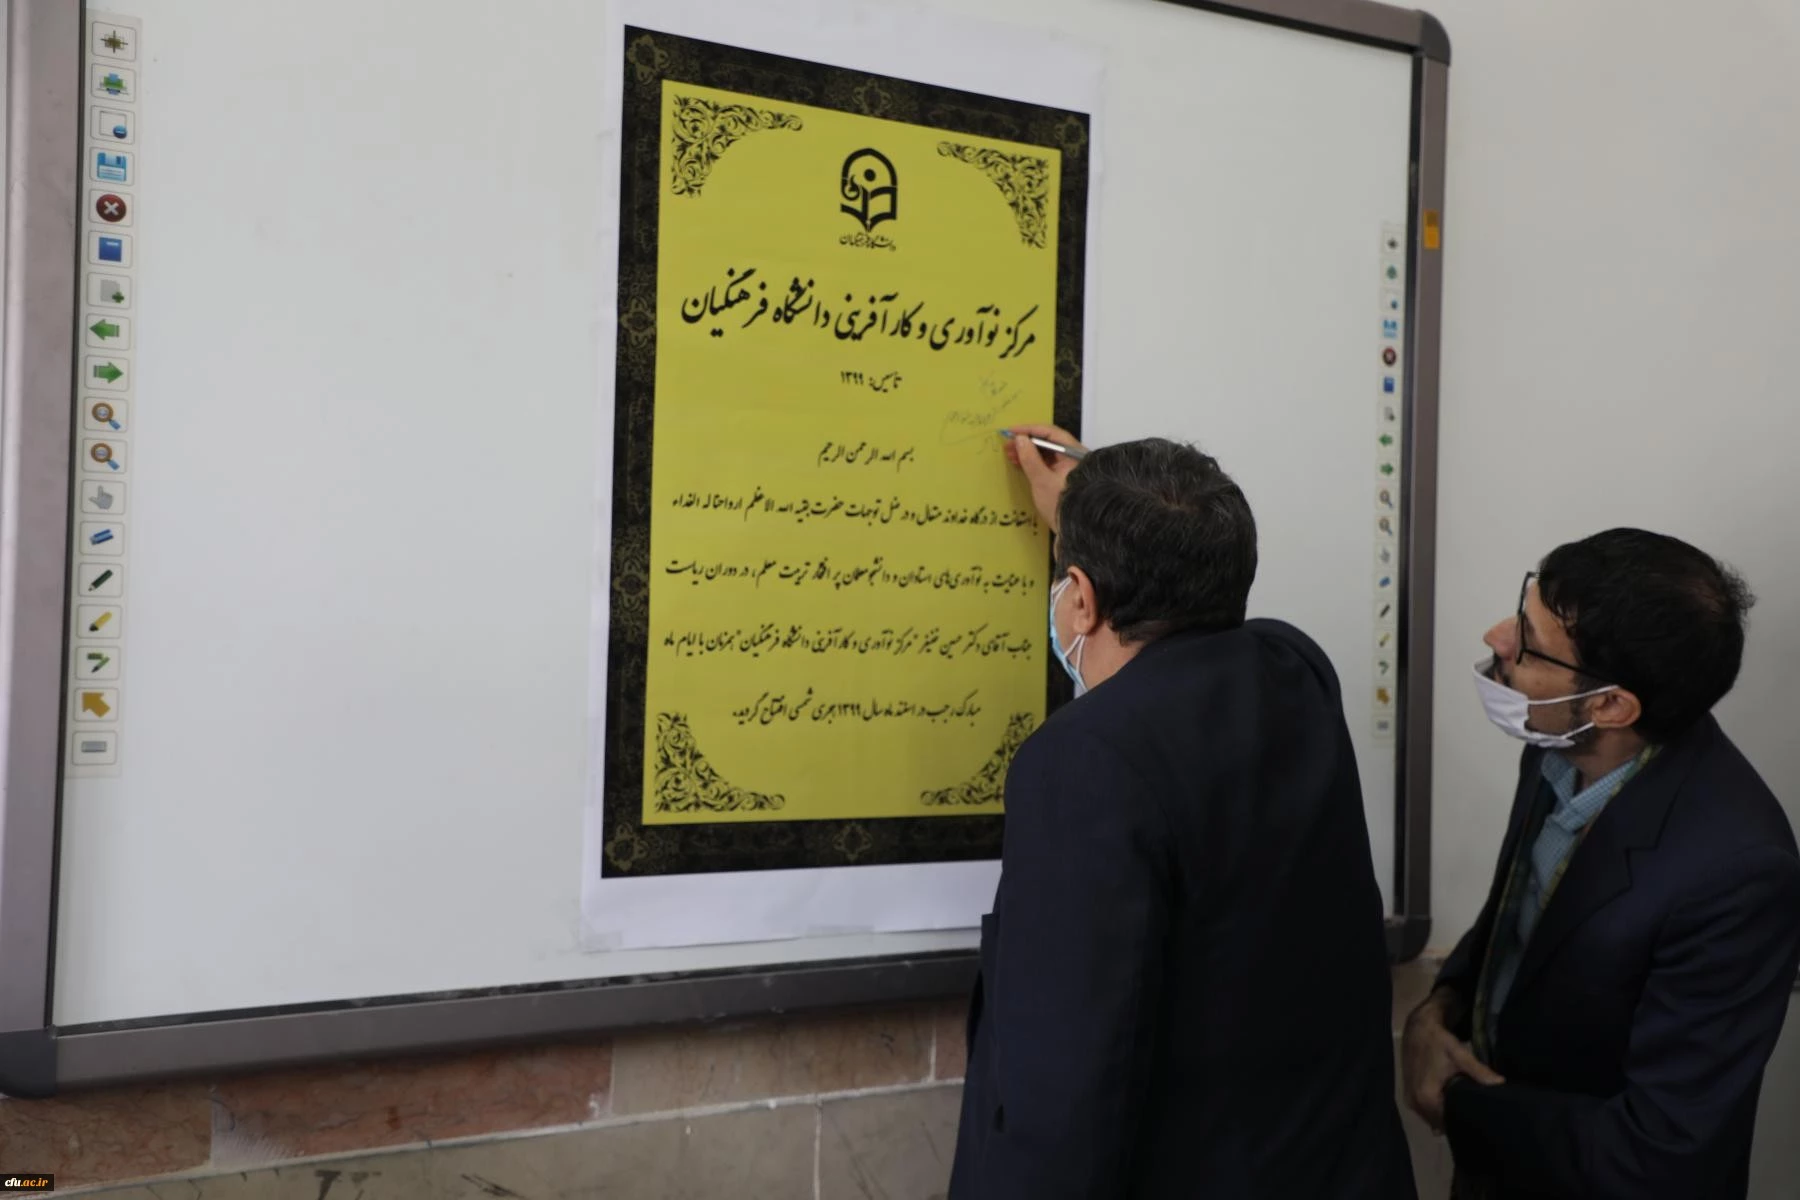 دانشگاه فرهنگیان
مرکز نوآوری و کارآفرینی دانشگاه فرهنگیان
تأسیس: ۱۳۹۹
بسم الله الرحمن الرحیم
با استعانت از درگاه خداوند متعال و در ظل توجهات حضرت بقیه الله الاعظم ارواحنا له الفداء
و با عنایت به نوآوری‌های استادان و دانشجومعلمان پر افتخار تربیت معلم، در دوران ریاست
جناب آقای دکتر حسین خنیفر "مرکز نوآوری و کارآفرینی دانشگاه فرهنگیان" همزمان با ایام ماه
مبارک رجب در اسفند ماه سال ۱۳۹۹ هجری شمسی افتتاح گردید.
cfu.ac.ir